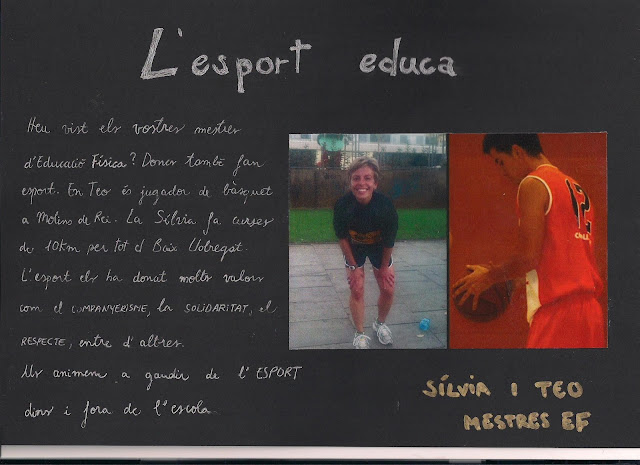 L'esport educa
Heu vist els vostres mestres
d'Educació Física? Doncs també fan
esport. En Teo és jugador de bàsquet
a Molins de Rei. La Sílvia fa curses
de 10km per tot el Baix Llobregat.
L'esport els ha donat molts valors
com el COMPANYERISME, la SOLIDARITAT, el
RESPECTE, entre d'altres.
Us animem a gaudir de l'ESPORT
dins i fora de l'escola.
12
SÍLVIA I TEO
MESTRES EF